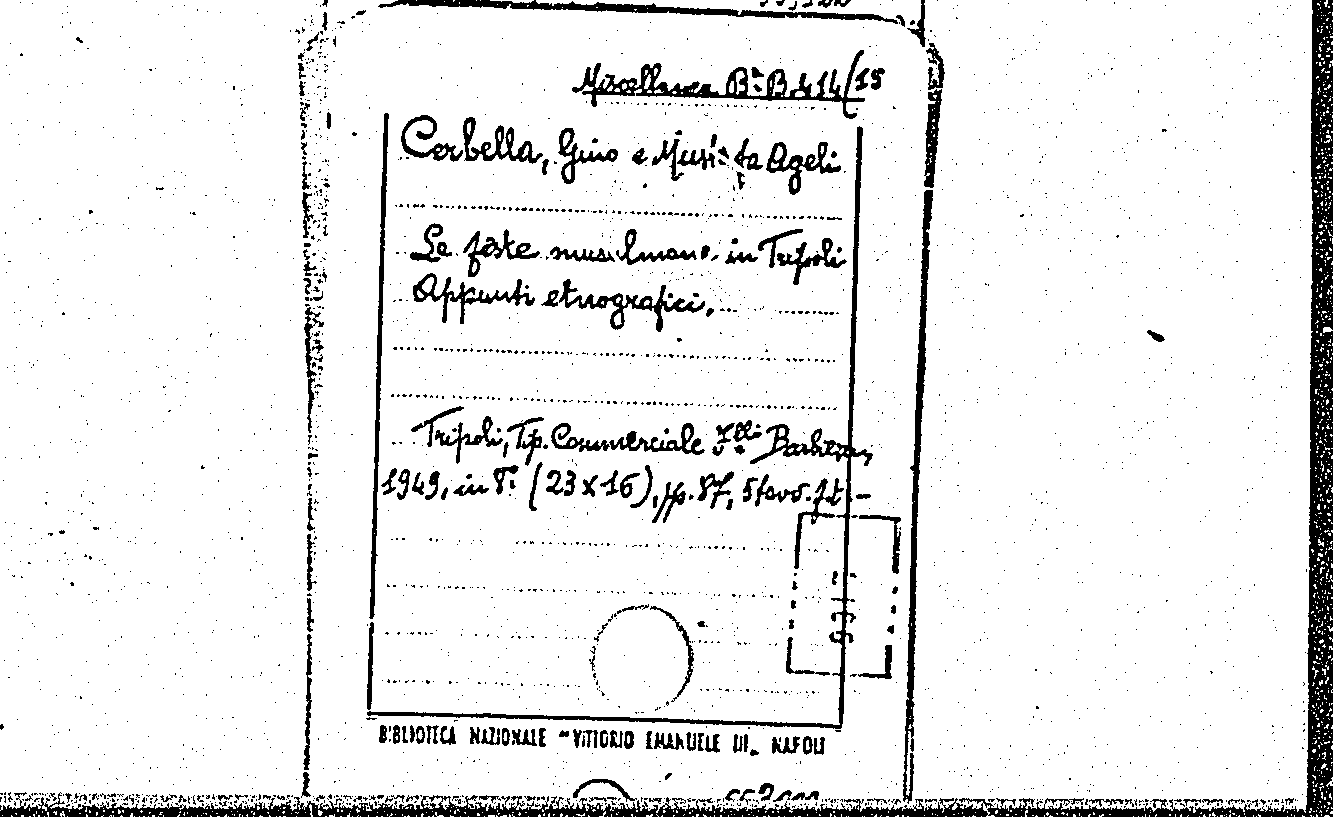 Miscellanea Bª B.414/15
Cerbella, Gino e Mus ta Ageli
Le feste musulmane in Tripoli
Appunti etnografici.
Tripoli, Tip. Commerciale F.lli Barbera,
1949, in 8º (23x16), pp. 87, 5 tavv. f.t. –
BIBLIOTECA NAZIONALE "VITTORIO EMANUELE III" NAPOLI